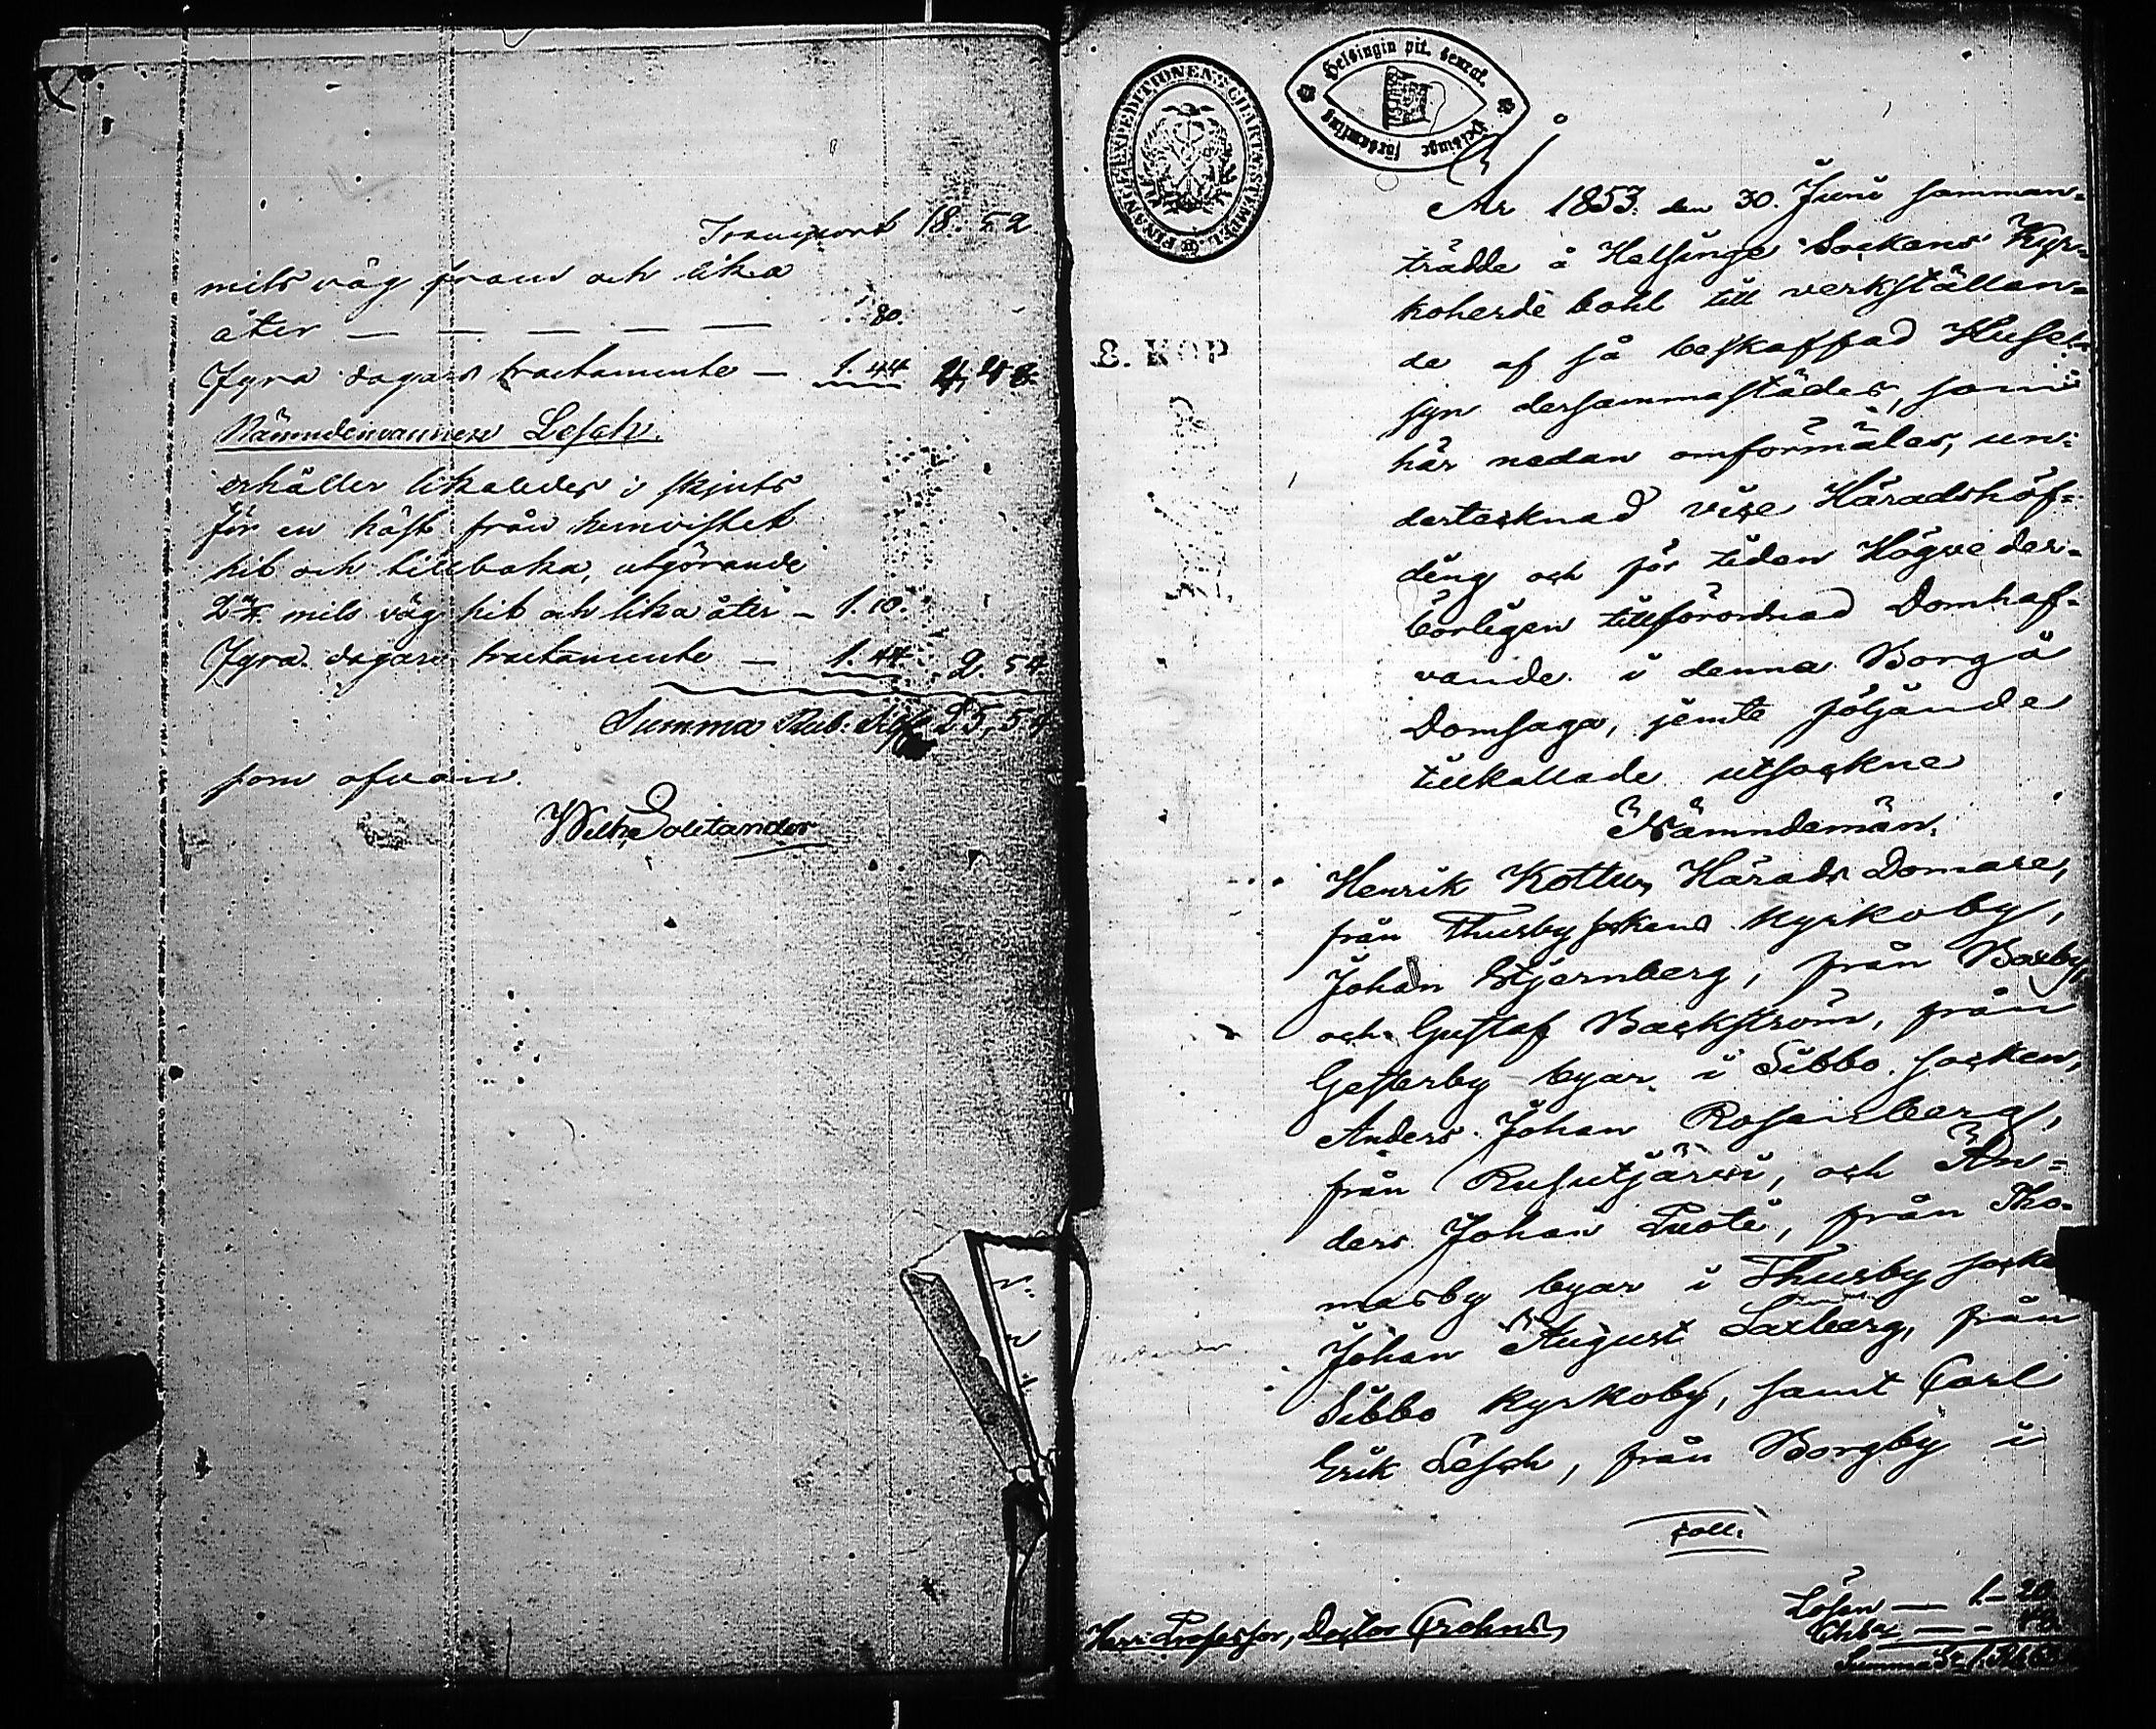 Transport 18. 52
mils väg fram och lika
åter — — — — — 80.
Fyra dagars tractamente — 1. 44
Nämndemannen Lesch.
erhåller likaledes i skjuts
för en häst från hemvistet
hit och tillbaka, utgörande
mils väg hit och lika åter — 1. 10.
Fyra dagars tractamente — 1. 44 2. 54
Summa Rub. Silf. 25, 54
som ofvan.
Wilh. Solitander
FINANCE EXPEDITIONENS CHARTÆ STEMPEL
Helsingin pit. seurak.
Helsinge församling
8. KOP
År 1853. den 30. Juni samman-
trädde å Helsinge Sockens Kyr-
koherde bohl till verkställan-
de af så beskaffad Husesyn
syn dersammastädes, som
här nedan omförmäles, un-
dertecknad vice Häradshöf-
ding och för tiden Högveder-
börligen tillförordnad Domhaf-
vande i denna Borgå
Domsaga, jemte följande
tillkallade utsockne
Nämndemän.
Henrik Kottus, Härads Domare,
från Thusby sockens Kyrkoby,
Johan Stjernberg, från Boxby
och Gustaf Backström, från
Gesterby byar i Sibbo socken,
Anders Johan Rosenberg,
från Rusutjärvi, och An-
ders Johan Tuoti, från Tho-
masby byar i Thusby socken
Johan August Saxberg, från
Sibbo Kyrkoby, samt Carl
Erik Lesch, från Borgby i
coll:
Lösen — 1 — 20
Chta — — 48.
Summa
Herr Professor, Doctor Crohns